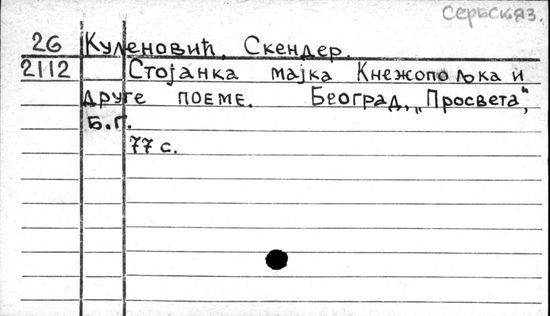 Сербск яз.
26 Куленовић, Скендер.
2112 Стојанка мајка Кнежопољка и
друге поеме. Београд, „Просвета“,
Б.Г.
77 с.